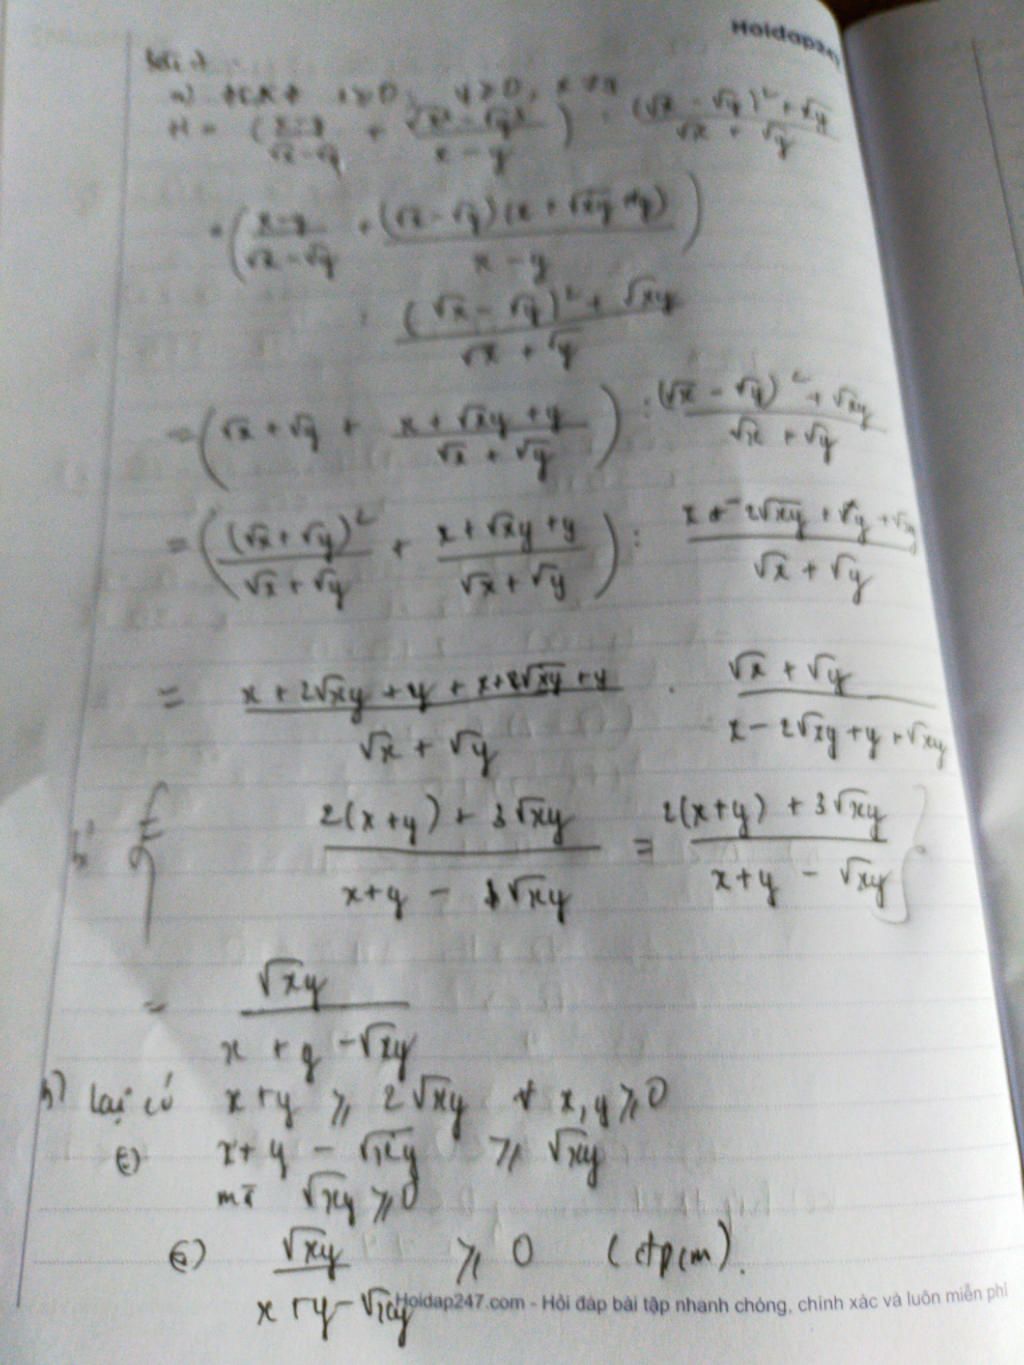 Hoidap247
a) ĐKXĐ x ≥ 0, y ≥ 0, x ≠ y
H = (x-y/√x-√y + √x³-√y³/x-y) : (√x-√y)²+√xy/√x+√y
= (x-y/√x-√y + (√x-√y)(x+√xy+y)/x-y)
: (√x-√y)²+√xy/√x+√y
= (√x+√y + x+√xy+y/√x+√y) : (√x-√y)²+√xy/√x+√y
= ((√x+√y)²/√x+√y + x+√xy+y/√x+√y) : x-2√xy+y+√xy/√x+√y
= x+2√xy+y+x+√xy+y/√x+√y . √x+√y/x-2√xy+y+√xy
2(x+y)+3√xy/x+y-√xy = 2(x+y)+3√xy/x+y-√xy
= √xy/x+y-√xy
b) lại có x+y ≥ 2√xy ∀ x,y ≥ 0
(=) x+y-√xy ≥ √xy
mà √xy ≥ 0
(=) √xy/x+y-√xy ≥ 0 (đpcm).
Hoidap247.com - Hỏi đáp bài tập nhanh chóng, chính xác và luôn miễn phí